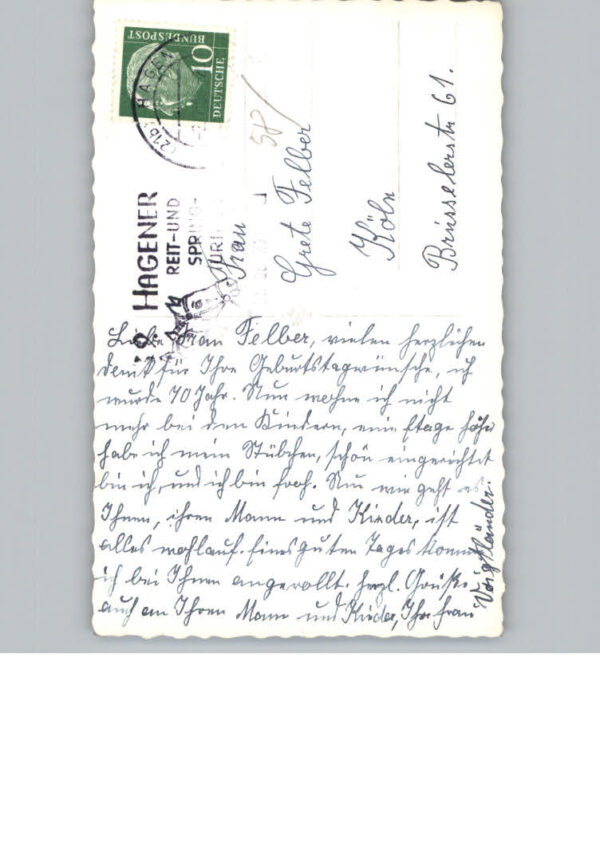 DEUTSCHE
BUNDESPOST
10
(21b) HAGEN
HAGENER
REIT-UND
SPRING-
TURNIER
58
Frau
Grete Felber
Köln
Brüsselerstr 61.
Liebe Frau Felber, vielen herzlichen
Dank für Ihre Geburtstagwünsche, ich
wurde 70 Jahr. Nun wohne ich nicht
mehr bei den Kindern, eine Etage höher
habe ich mein Stübchen, schön eingerichtet
bin ich, und ich bin froh. Nu wie geht es
Ihnen, ihren Mann und Kinder, ist
alles wohlauf. Eines guten Tages komme
ich bei Ihnen angerollt. herzl. Grüße
auch an Ihren Mann und Kinder, Ihr Frau
Voigtländer.